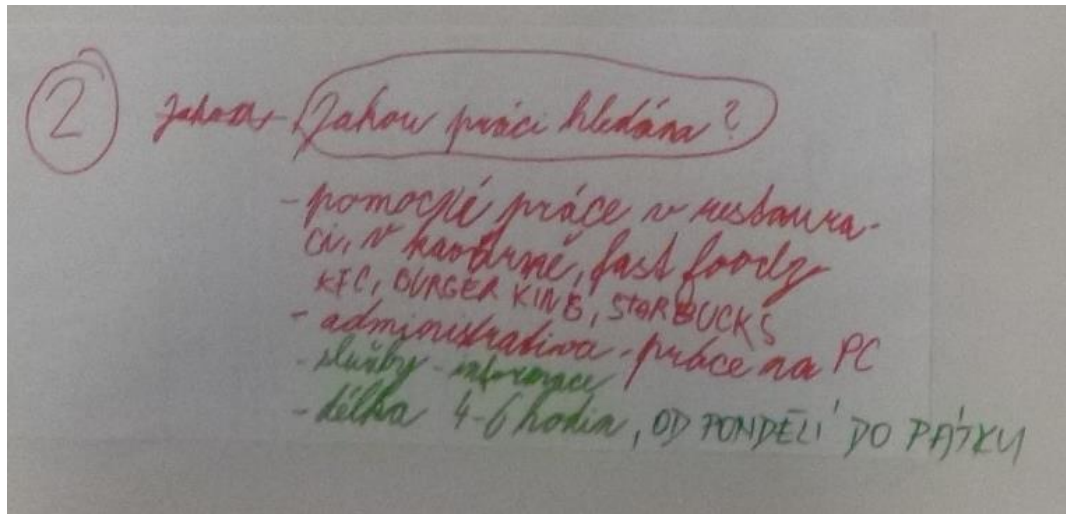 2 Jakou práci hledám?
- pomocné práce v restaura-
ci, v kavárně, fast foody
KFC, BURGER KING, STARBUCKS
- administrativa - práce na PC
- služby - informace
- délka 4-6 hodin, OD PONDĚLÍ DO PÁTKU